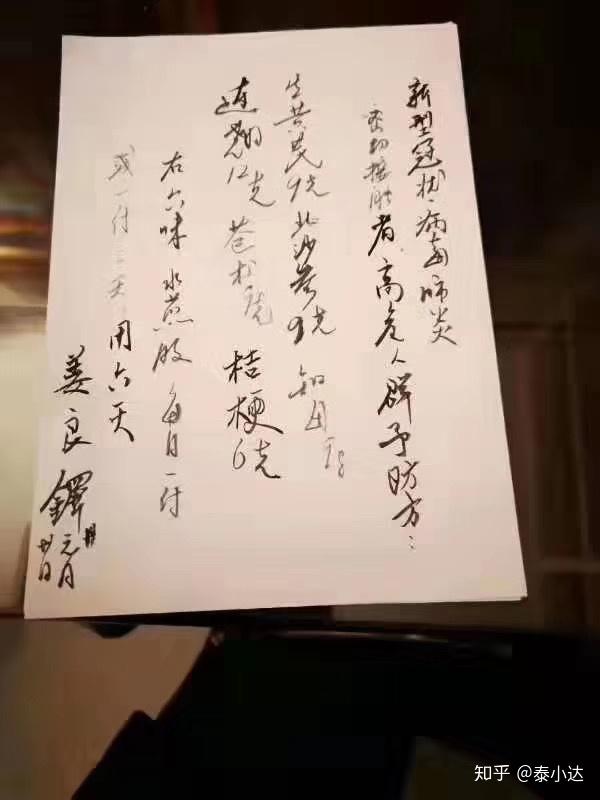 新型冠状病毒肺炎
密切接触者、高危人群予防方：
生黄芪9克 北沙参9克 知母
連翘12克 苍术 桔梗6克
右六味 水煎服 每日一付
或一付 天 用六天
姜良鐸
元月
廿日
知乎 @泰小达